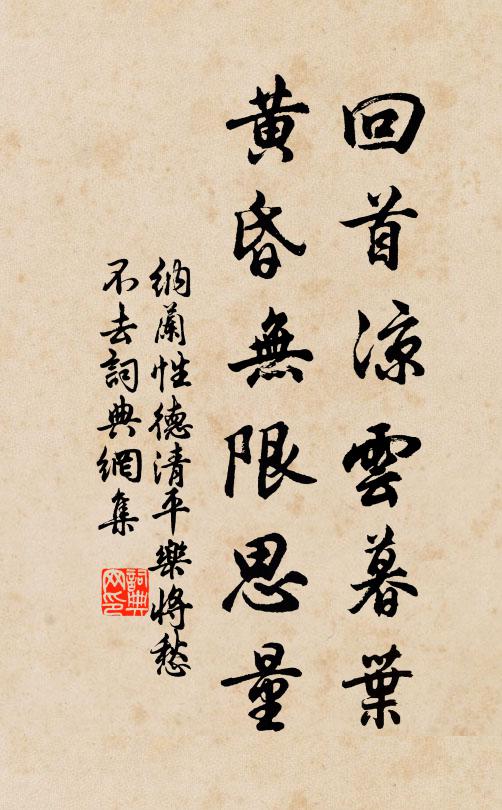 回首涼雲暮葉
黃昏無限思量
納蘭性德清平樂將愁
不去詞典網集
詞典網印